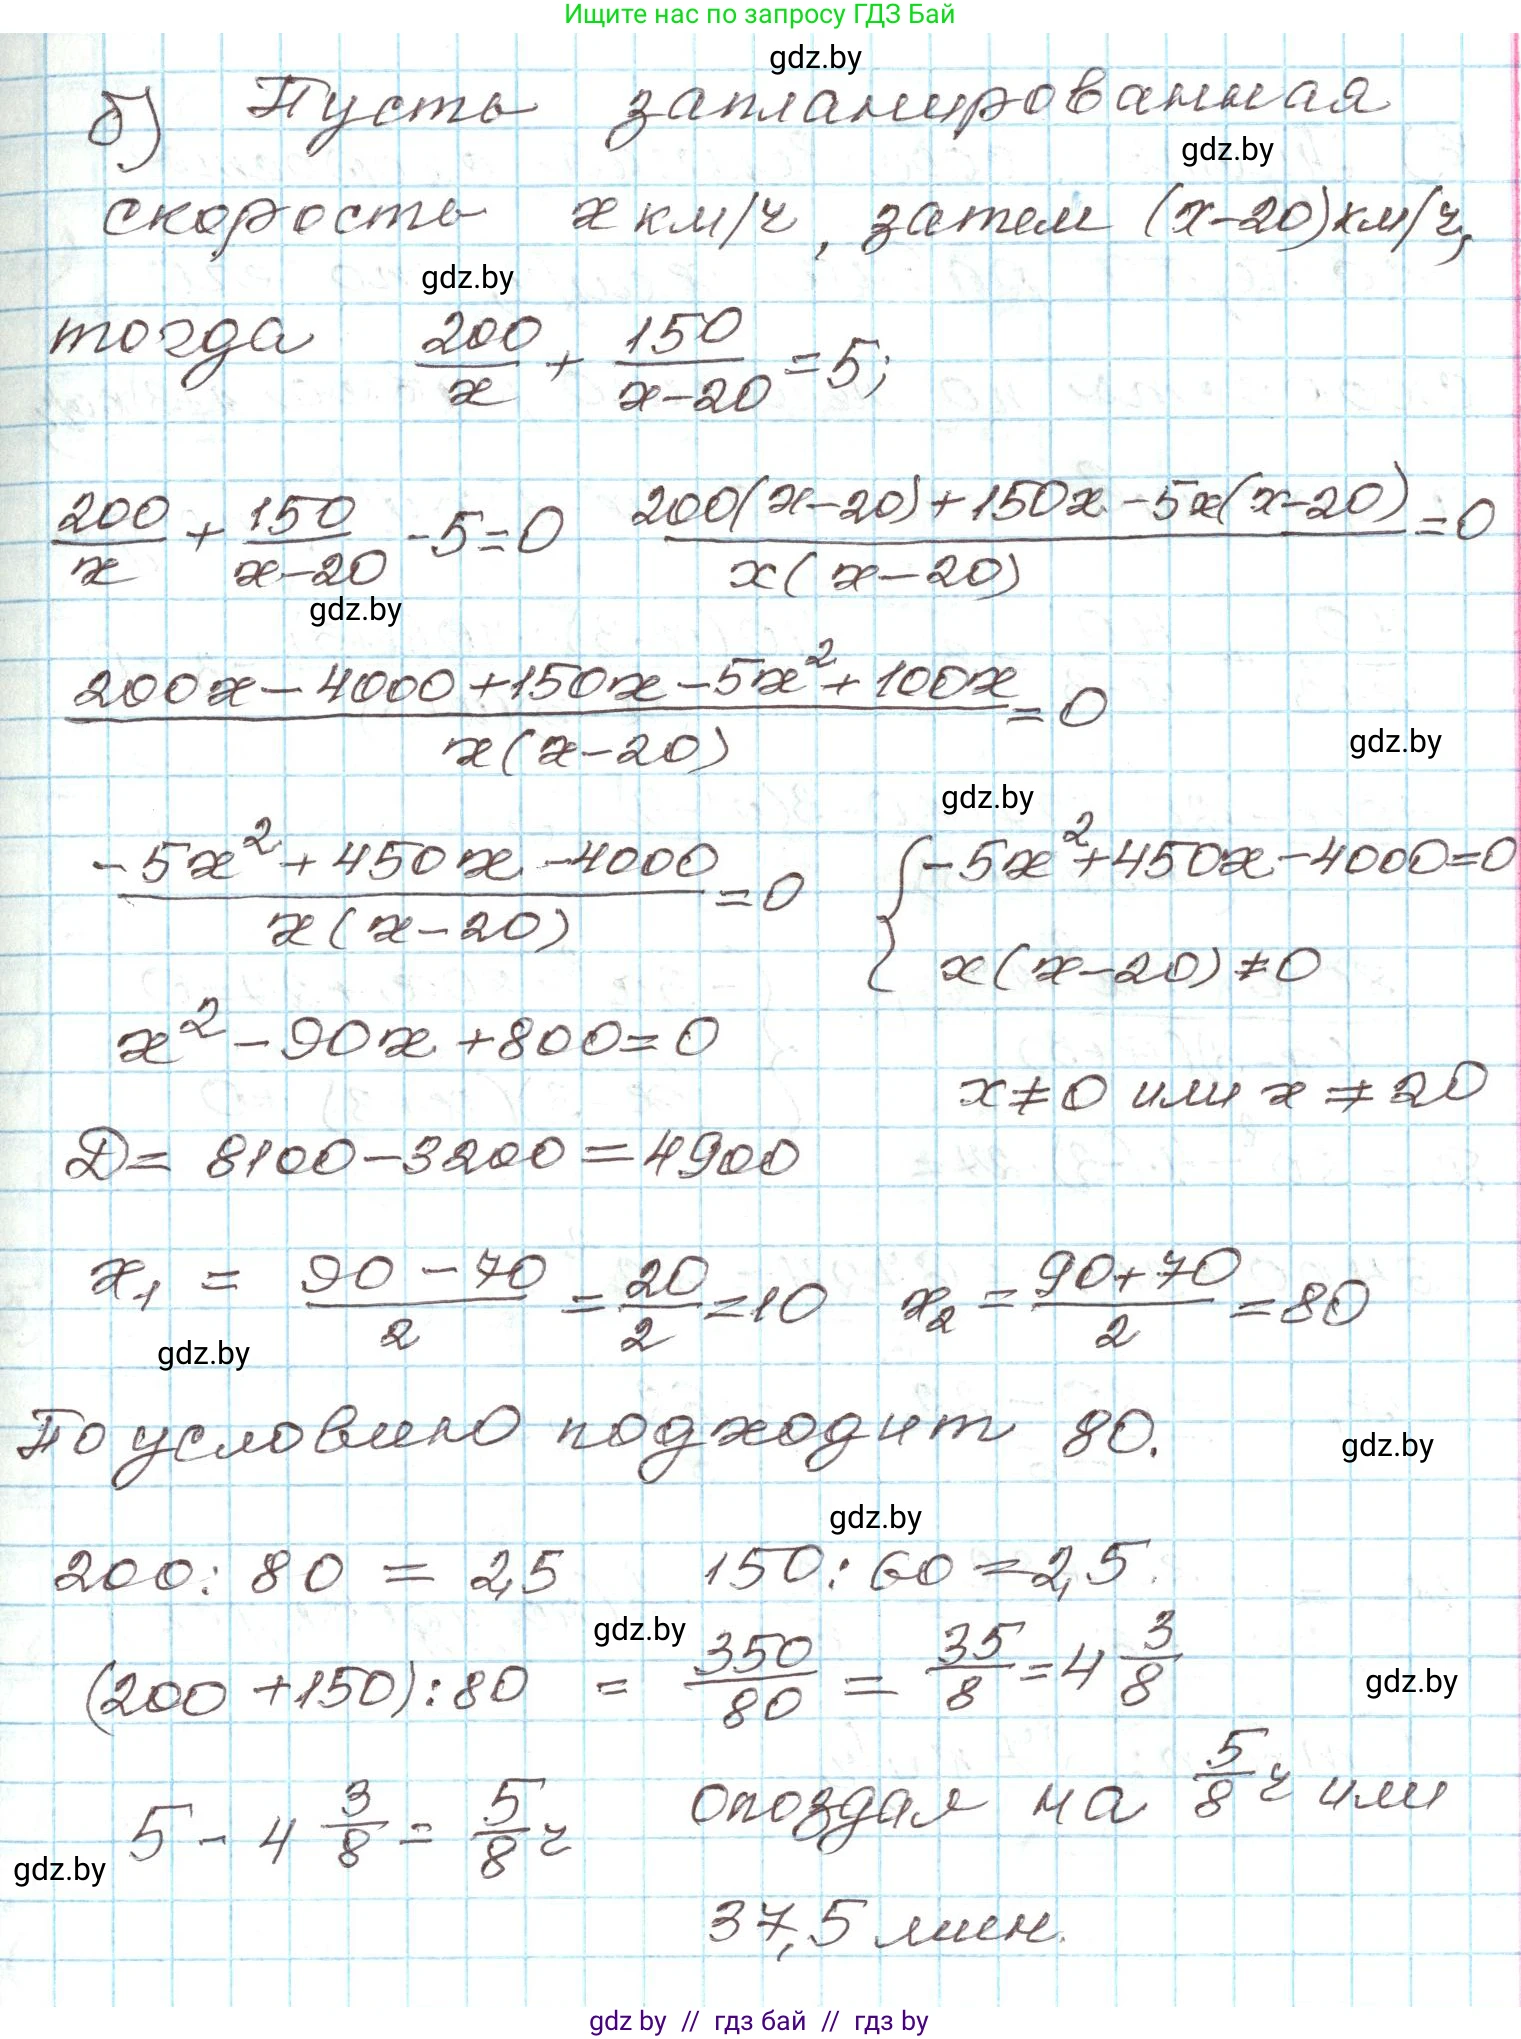 Ищите нас по запросу ГДЗ Бай
gdz.by
б) Пусть запланированная
gdz.by
скорость x км/ч, затем (x-20) км/ч,
gdz.by
тогда 200/x + 150/(x-20) = 5;
200/x + 150/(x-20) - 5 = 0   (200(x-20)+150x-5x(x-20))/(x(x-20)) = 0
gdz.by
(200x-4000+150x-5x²+100x)/(x(x-20)) = 0
gdz.by
gdz.by
(-5x²+450x-4000)/(x(x-20)) = 0   { -5x²+450x-4000=0
x(x-20)≠0
x²-90x+800=0
x≠0 или x≠20
Д= 8100-3200=4900
x₁ = (90-70)/2 = 20/2 = 10   x₂ = (90+70)/2 = 80
gdz.by
По условию подходит 80.
gdz.by
gdz.by
200:80 = 2,5   150:60=2,5.
gdz.by
(200+150):80 = 350/80 = 35/8 = 4 3/8
gdz.by
5 - 4 3/8 = 5/8 ч   опоздал на 5/8 ч или
gdz.by
37,5 мин.
gdz.by // гдз бай // гдз by